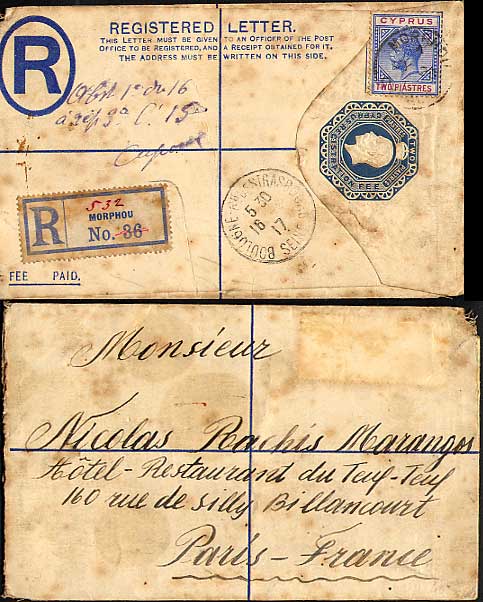 REGISTERED LETTER.
THIS LETTER MUST BE GIVEN TO AN OFFICER OF THE POST
OFFICE TO BE REGISTERED, AND A RECEIPT OBTAINED FOR IT.
THE ADDRESS MUST BE WRITTEN ON THIS SIDE.
R
CYPRUS
TWO PIASTRES
TWO
FEE
532
R
MORPHOU
No. 36
FEE PAID.
BOULOGNE
SEINE
5 30
16
17
Monsieur
Nicolas Rachis Marangos
Hôtel-Restaurant du Teuf-Teuf
160 rue de Silly Billancourt
Paris-France